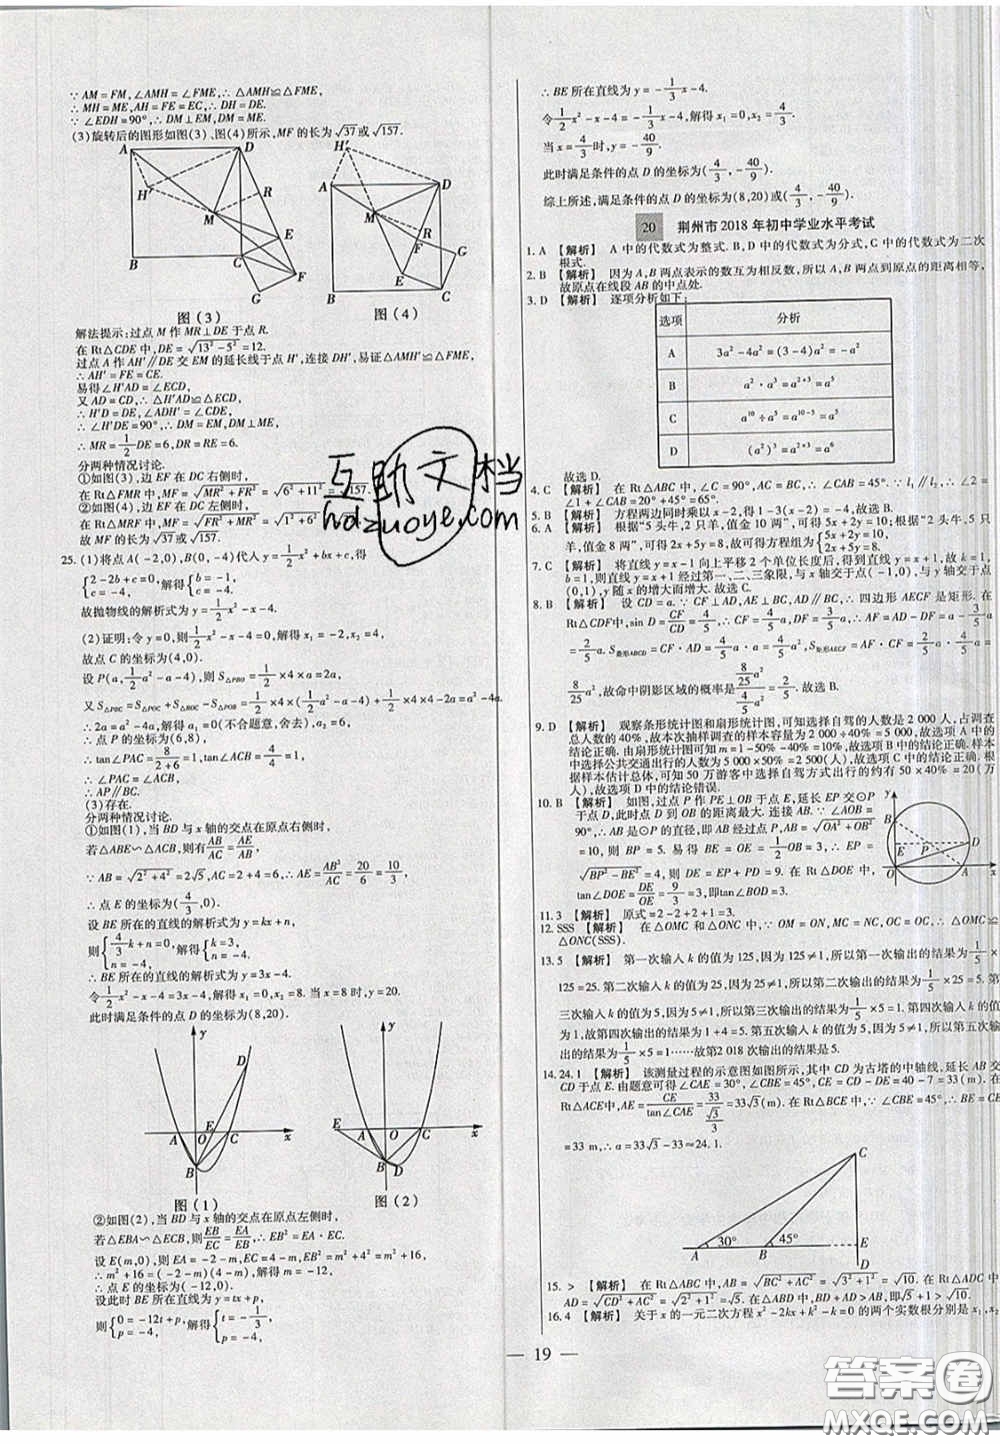 ∵ AM = FM, ∠AMH = ∠FME, ∴ △AMH≌△FME,
∴ MH = ME, AH = FE = EC, ∴ DH = DE.
∵ ∠EDH = 90°, ∴ DM⊥EM, DM = EM.
(3)旋转后的图形如图(3)、图(4)所示,MF 的长为√37或√157.
A D H' R M E B C F G
H' A D M R F B E G C
图(3)
图(4)
解法提示:过点 M 作 MR⊥DE 于点 R.
在 Rt△CDE 中,DE = √(13² - 5²) = 12.
过点 A 作 AH'∥DE 交 EM 的延长线于点 H',连接 DH',易证△AMH'≌△FME,
∴ AH' = FE = CE.
易得∠H'AD = ∠ECD,
又 AD = CD, ∴ △H'AD≌△ECD,
∴ H'D = DE, ∠ADH' = ∠CDE,
∴ ∠H'DE = 90°, ∴ DM = EM, DM⊥ME,
∴ MR = 1/2 DE = 6, DR = RE = 6.
分两种情况讨论.
①如图(3),边 EF 在 DC 右侧时,
在 Rt△FMR 中,MF = √(MR² + FR²) = √(6² + 11²) = √157.
②如图(4),边 EF 在 DC 左侧时,
在 Rt△MRF 中,MF = √(FR² + MR²) = √(1² + 6²) = √37.
故 MF 的长为√37或√157.
25. (1)将点 A( -2,0),B(0, -4)代入 y = 1/2 x² + bx + c,得
{2 - 2b + c = 0, c = -4, 解得{b = -1, c = -4,
故抛物线的解析式为 y = 1/2 x² - x - 4.
(2)证明:令 y = 0,则 1/2 x² - x - 4 = 0,解得 x₁ = -2,x₂ = 4,
故点 C 的坐标为(4,0).
设 P(a, 1/2 a² - a - 4),则 S△PBO = 1/2 × 4 × a = 2a,
又 S△PBC = S△POC + S△BOC - S△POB = 1/2 × 4 × (1/2 a² - a - 4) + 1/2 × 4 × 4 - 2a = a² - 4a,
∴ 2a = a² - 4a,解得 a₁ = 0(不合题意,舍去),a₂ = 6,
∴ 点 P 的坐标为(6,8),
∴ tan∠PAC = 8/(2 + 6) = 1,
∴ ∠PAC = 45°.
(3)存在.
分两种情况讨论.
①如图(1),当 BD 与 x 轴的交点在原点右侧时,
若△ABE∽△ACB,则有 AB/AC = AE/AB,
∵ AB = √(2² + 4²) = 2√5, ∴ AE = AB²/AC = 20/6 = 10/3,
∴ 点 E 的坐标为(4/3,0).
设 BE 所在的直线的解析式为 y = kx + n,
则{4/3 k + n = 0, n = -4, 解得{k = 3, n = -4,
∴ BE 所在的直线的解析式为 y = 3x - 4.
令 1/2 x² - x - 4 = 3x - 4,解得 x₁ = 0,x₂ = 8. 当 x = 8 时,y = 20.
此时满足条件的点 D 的坐标为(8,20).
y D A O E C x B
y E A O C x B D
图(1)
图(2)
②如图(2),当 BD 与 x 轴的交点在原点左侧时,
若△EBA∽△ECB,则 EB/EC = EA/EB, ∴ EB² = EA·EC.
设 E(m,0),则 EA = -2 - m,EC = 4 - m,EB² = m² + 4² = m² + 16,
∴ m² + 16 = ( -2 - m)(4 - m),解得 m = -12,
∴ 点 E 的坐标为( -12,0).
设此时 BE 所在直线为 y = tx + p,
则{0 = -12t + p, p = -4, 解得{t = -1/3, p = -4,
∴ BE 所在直线为 y = -1/3 x - 4.
令 1/2 x² - x - 4 = -1/3 x - 4,解得 x₁ = 0,x₂ = 4/3,
当 x = 4/3 时,y = -40/9.
此时满足条件的点 D 的坐标为(4/3, -40/9).
综上所述,满足条件的点 D 的坐标为(8,20)或(4/3, -40/9).
20 荆州市 2018 年初中学业水平考试
1. A 【解析】 A 中的代数式为整式. B,D 中的代数式为分式,C 中的代数式为二次
根式.
2. B 【解析】 因为 A,B 两点表示的数互为相反数,所以 A,B 两点到原点的距离相等,
故原点在线段 AB 的中点处.
3. D 【解析】 逐项分析如下:
选项 分析
A 3a² - 4a² = (3 - 4)a² = -a²
B a²·a³ = a²⁺³ = a⁵
C a¹⁰ ÷ a⁵ = a¹⁰⁻⁵ = a⁵
D (a²)³ = a²ˣ³ = a⁶
故选 D.
4. C 【解析】 在 Rt△ABC 中,∠C = 90°,AC = BC, ∴ ∠CAB = 45°. ∵ l₁∥l₂, ∴ ∠2 =
∠1 + ∠CAB = 20° + 45° = 65°. 故选 C.
5. B 【解析】 方程两边同时乘以 x - 2,得 1 - 3(x - 2) = -4. 故选 B.
6. A 【解析】 根据“5 头牛,2 只羊,值金 10 两”,可得 5x + 2y = 10;根据“2 头牛,5 只
羊,值金 8 两”,可得 2x + 5y = 8,故可得方程组为{5x + 2y = 10, 2x + 5y = 8. 故选 A.
7. C 【解析】 将直线 y = x - 1 向上平移 2 个单位长度后,得到直线 y = x + 1,故 k = 1,
b = 1,则直线 y = x + 1 经过第一、二、三象限,与 x 轴交于点( -1,0),与 y 轴交于点
(0,1),y 随 x 的增大而增大. 故选 C.
8. B 【解析】 设 CD = a. ∵ CF⊥AD,AE⊥BC,AD∥BC, ∴ 四边形 AECF 是矩形. 在
Rt△CDF 中,sin D = CF/CD = 4/5, ∴ CF = 4/5 a, ∴ DF = 3/5 a, ∴ AF = AD - DF = a - 3/5 a
= 2/5 a. S菱形ABCD = CF·AD = 4/5 a·a = 4/5 a², S矩形AECF = AF·CF = 2/5 a·4/5 a =
8/25 a²,故命中阴影区域的概率是 (8/25 a²)/(4/5 a²) = 2/5. 故选 B.
9. D 【解析】 观察条形统计图和扇形统计图,可知选择自驾的人数是 2 000 人,占调查
总人数的 40%,故本次抽样调查的样本容量为 2 000 ÷ 40% = 5 000,故选项 A 中的
结论正确. 由扇形统计图可知 m = 1 - 50% - 40% = 10%,故选项 B 中的结论正确. 样本
中选择公共交通出行的人数为 5 000 × 50% = 2 500(人),故选项 C 中的结论正确.
根据样本估计总体,可知 50 万游客中选择自驾方式出行的约有 50 × 40% = 20(万
人),故选项 D 中的结论错误.
10. B 【解析】 如图,过点 P 作 PE⊥OB 于点 E,延长 EP 交⊙P
于点 D,此时点 D 到 OB 的距离最大. 连接 AB. ∵ ∠AOB =
90°, ∴ AB 是⊙P 的直径,即 AB 经过点 P,AB = √(OA² + OB²)
= 10,则 BP = 5. 易得 BE = OE = 1/2 OB = 3, ∴ EP =
√(BP² - BE²) = 4,则 DE = EP + PD = 9. 在 Rt△DOE 中,
tan∠DOE = DE/OE = 9/3 = 3,即 tan∠BOD = 3.
y B E P D O A x
11. 3 【解析】 原式 = 2 - 2 + 2 + 1 = 3.
12. SSS 【解析】 在△OMC 和△ONC 中, ∵ OM = ON,MC = NC,OC = OC, ∴ △OMC≌
△ONC(SSS).
13. 5 【解析】 第一次输入 k 的值为 125,因为 125≠1,所以第一次输出的结果为 1/5 ×
125 = 25. 第二次输入 k 的值为 25,因为 25≠1,所以第二次输出的结果为 1/5 × 25 = 5. 第
三次输入 k 的值为 5,因为 5≠1,所以第三次输出的结果为 1/5 × 5 = 1. 第四次输入 k 的值
为 1,故第四次输出的结果为 1 + 4 = 5. 第五次输入 k 的值为 5,因为 5≠1,所以第五次输
出的结果为 1/5 × 5 = 1……故第 2 018 次输出的结果是 5.
14. 24.1 【解析】 该测量过程的示意图如图所示,其中 CD 为古塔的中轴线,延长 AB 交
CD 于点 E. 由题意可得∠CAE = 30°,∠CBE = 45°,CE = CD - DE = 40 - 7 = 33(m). 在
Rt△ACE 中,AE = CE/tan∠CAE = 33/(√3/3) = 33√3(m). 在 Rt△BCE 中, ∵ ∠CBE = 45°, ∴ BE = CE
= 33 m, ∴ a = 33√3 - 33 ≈ 24.1.
C 30° 45° A B E D
15. > 【解析】 在 Rt△ABC 中,AB = √(BC² + AC²) = √(3² + 1²) = √10. 在 Rt△ADC 中,
AD = √(CD² + AC²) = √(2² + 1²) = √5. 在△ABD 中,BD + AD > AB,即√5 + 1 > √10.
16. 4 【解析】 关于 x 的一元二次方程 x² - 2kx + k² - k = 0 的两个实数根分别是 x₁,x₂
— 19 —
互助文档
hdzuoye.com
答案圈
MXQE.COM